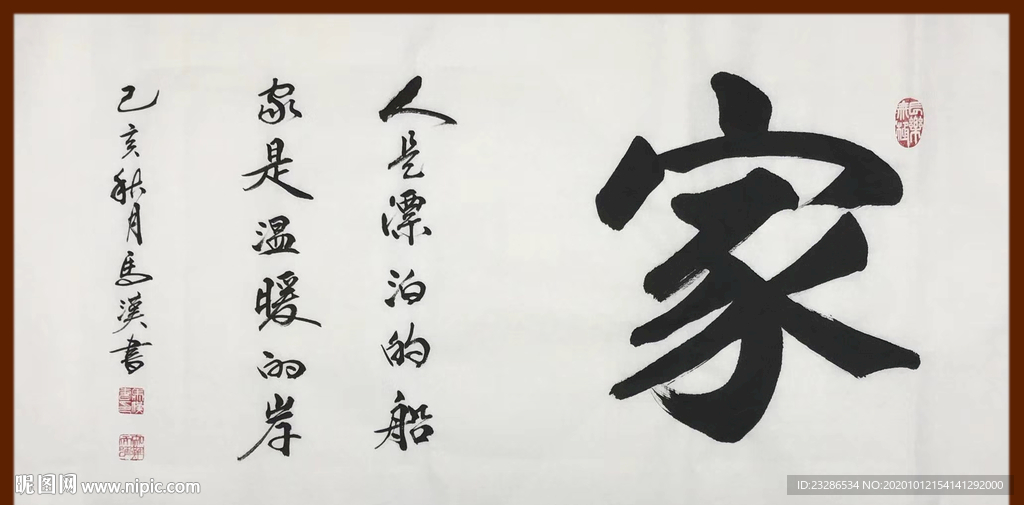 家
人是漂泊的船
家是温暖的岸
己亥秋月馬漢書
昵图网 www.nipic.com
ID:23286534 NO:20201012154141292000